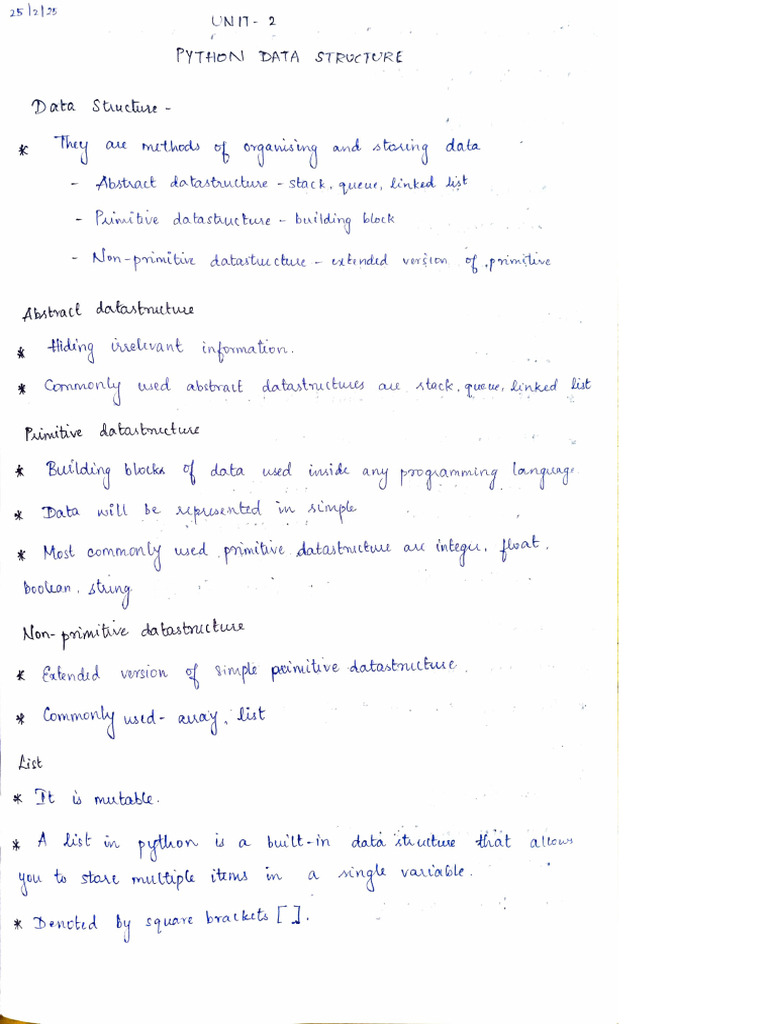 25/2/25
UNIT- 2
PYTHON DATA STRUCTURE
Data Structure -
* They are methods of organising and storing data
- Abstract datastructure - stack, queue, linked list
- Primitive datastructure - building block
- Non-primitive datastructure - extended version of primitive
Abstract datastructure
* Hiding irrelevant information.
* Commonly used abstract datastructures are stack, queue, linked list
Primitive datastructure
* Building blocks of data used inside any programming language
* Data will be represented in simple
* Most commonly used primitive datastructure are integer, float,
boolean, string
Non-primitive datastructure
* Extended version of simple primitive datastructure.
* Commonly used- array, list
List
* It is mutable.
* A list in python is a built-in data structure that allows
you to store multiple items in a single variable.
* Denoted by square brackets [ ].